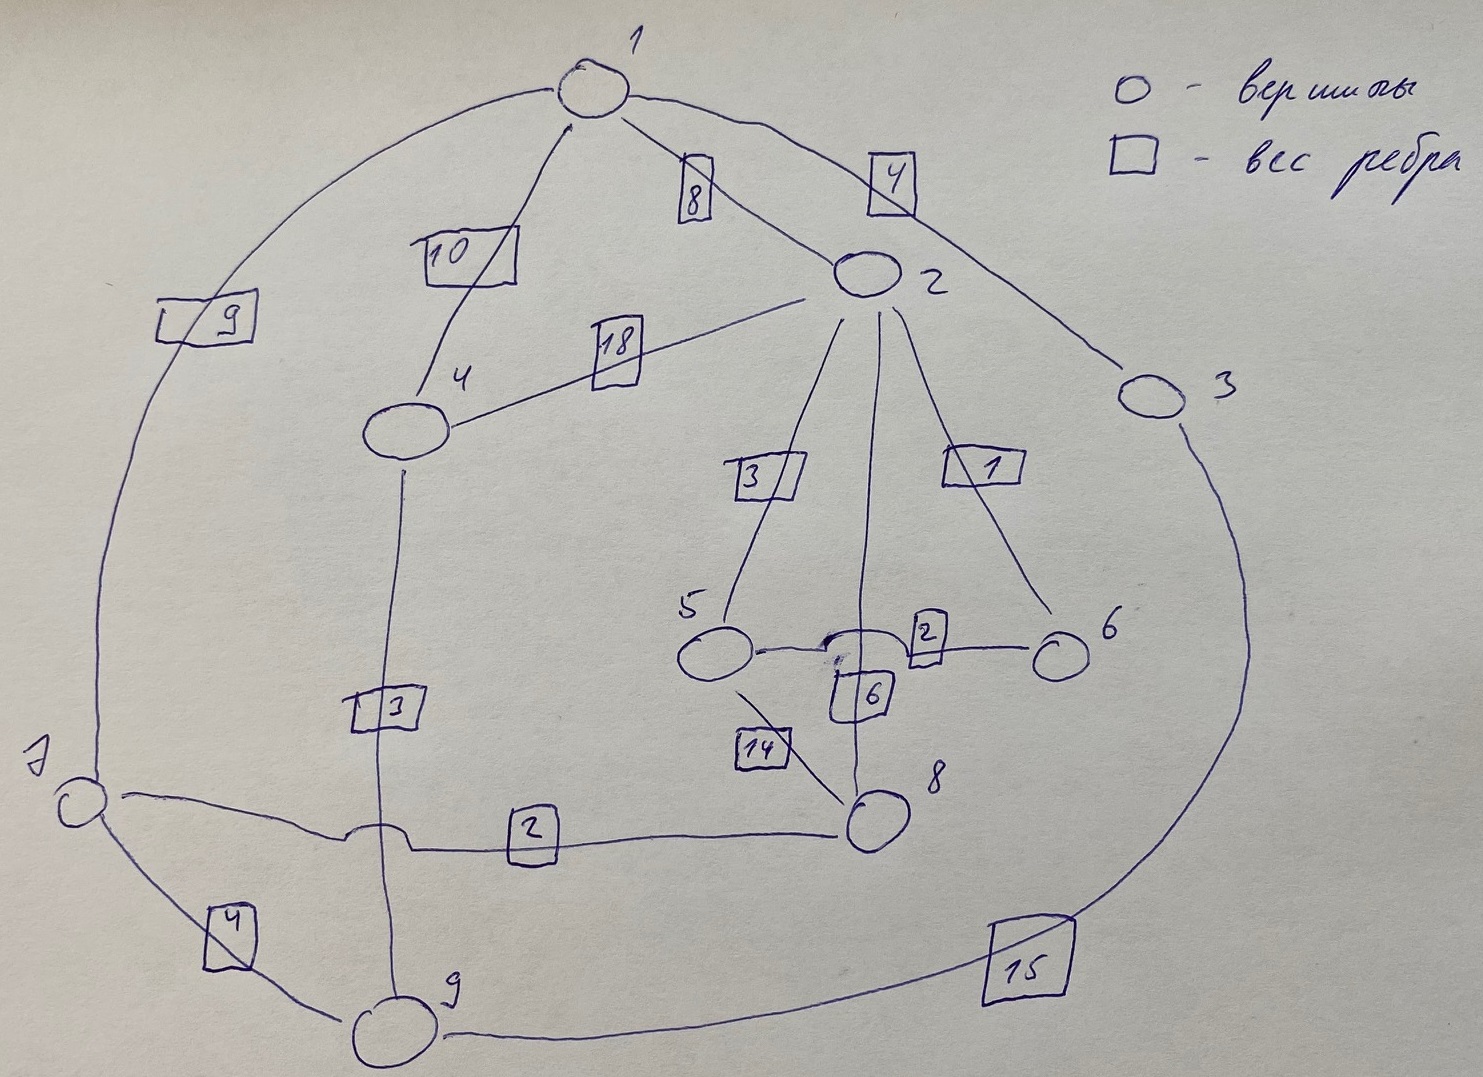 1
○ - вершины
□ - вес ребра
8
4
10
2
9
18
4
3
3
1
5
2
6
3
6
14
7
8
2
4
9
15